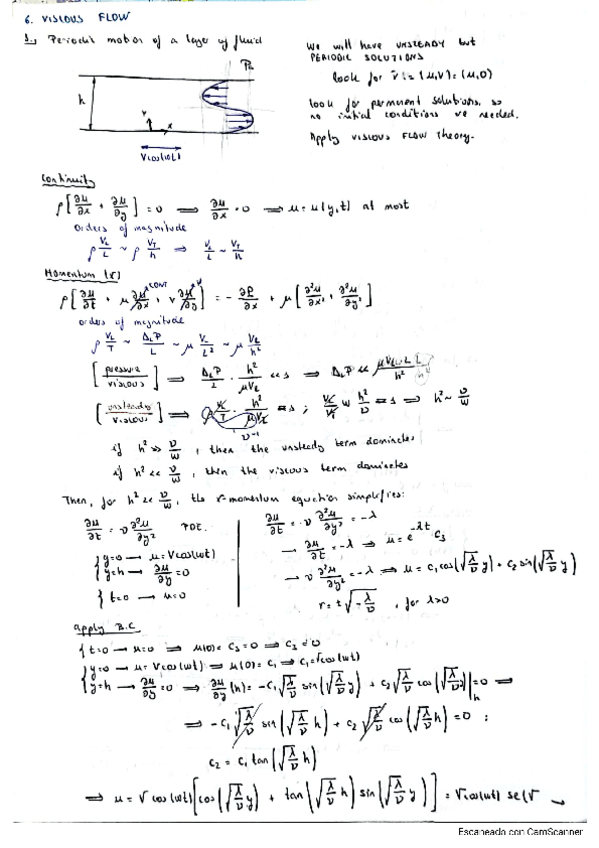 6. VISCOUS FLOW
1., Periodic motion of a layer of fluid
We will have UNSTEADY but
PERIODIC SOLUTIONS
look for v̄ = (u,v) = (u,0)
look for permanent solutions, so
no initial conditions we needed.
Apply VISCOUS FLOW Theory.
Pa
h
y
x
V cos(ωt)
Continuity
ρ[∂u/∂x + ∂u/∂y] = 0 ⟹ ∂u/∂x = 0 ⟹ u = u(y,t) at most
Orders of magnitude
Momentum (x)
CONT
ρ[∂u/∂t + u ∂u/∂x + v ∂u/∂y] = - ∂P/∂x + μ[∂²u/∂x² + ∂²u/∂y²]
orders of magnitude
[pressure/viscous] ⟹
[unsteady/viscous] ⟹
if h² >> ν/ω, then the unsteady term dominates
if h² << ν/ω, then the viscous term dominates
Then, for h² << ν/ω, the x-momentum equation simplifies:
∂u/∂t = ν ∂²u/∂y² PDE.
{ y=0 → u = V cos(ωt)
y=h → ∂u/∂y = 0
{ t=0 → u=0
∂u/∂t = ν ∂²u/∂y² = -λ
→ ∂u/∂t = -λ ⟹ u = e^-λt c₃
→ ν ∂²u/∂y² = -λ ⟹ u = c₁ cos(√λ/ν y) + c₂ sin(√λ/ν y)
r = ±√-λ/ν , for λ>0
Apply B.C
{ t=0 → u=0 ⟹ u(0) = c₃ = 0 ⟹ c₃ = 0
{ y=0 → u = V cos(ωt) ⟹ u(0) = c₁ ⟹ c₁ = V cos(ωt)
y=h → ∂u/∂y = 0 ⟹ ∂u/∂y (h) = -c₁ √λ/ν sin(√λ/ν y) + c₂ √λ/ν cos(√λ/ν y)|h = 0 ⟹
⟹ -c₁ √λ/ν sin(√λ/ν h) + c₂ √λ/ν cos(√λ/ν h) = 0 ;
c₂ = c₁ tan(√λ/ν h)
⟹ u = V cos(ωt)[cos(√λ/ν y) + tan(√λ/ν h) sin(√λ/ν y)] = V cos(ωt)
Escaneado con CamScanner